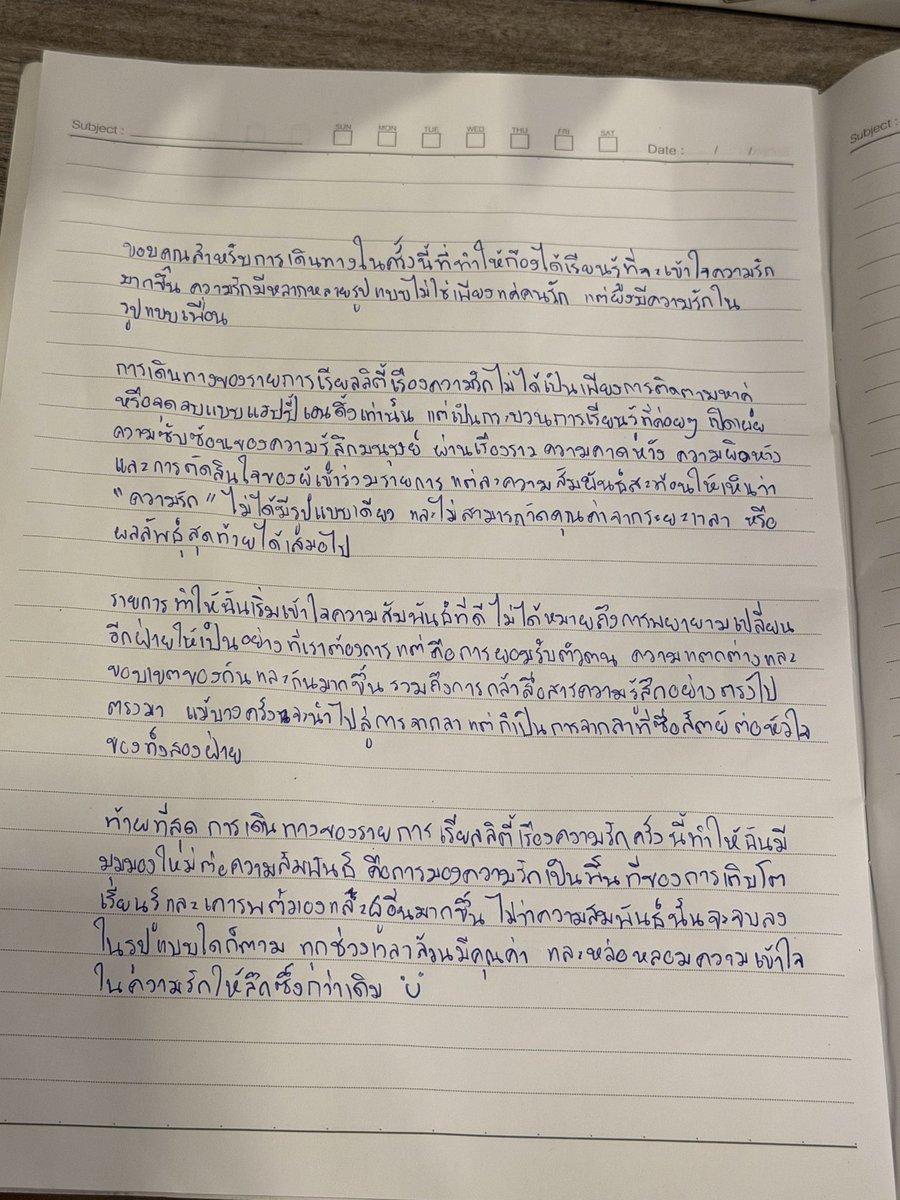 Subject :
SUN MON TUE WED THU FRI SAT
Date : / /
Subject :
ขอบคุณสำหรับการเดินทางในครั้งนี้ที่ทำให้ก้องได้เรียนรู้ที่จะเข้าใจความรัก
มากขึ้น ความรักมีหลากหลายรูปแบบไม่ใช่เพียงแค่คนรัก แต่ยังมีความรักใน
รูปแบบเพื่อน
การเดินทางของรายการเรียลลิตี้เรื่องความรักไม่ได้เป็นเพียงการติดตามหาคู่
หรือจุดจบแบบแฮปปี้เอนดิ้งเท่านั้น แต่เป็นกระบวนการเรียนรู้ที่ค่อยๆ เปิดเผย
ความซับซ้อนของความรู้สึกมนุษย์ ผ่านเรื่องราว ความคาดหวัง ความผิดหวัง
และการตัดสินใจของผู้เข้าร่วมรายการ แต่ละความสัมพันธ์สะท้อนให้เห็นว่า
"ความรัก" ไม่ได้มีรูปแบบเดียว และไม่สามารถวัดคุณค่าจากระยะเวลา หรือ
ผลลัพธ์สุดท้ายได้เสมอไป
รายการทำให้ฉันเริ่มเข้าใจความสัมพันธ์ที่ดี ไม่ได้หมายถึงการพยายามเปลี่ยน
อีกฝ่ายให้เป็นอย่างที่เราต้องการแต่คือการยอมรับตัวตน ความแตกต่างและ
ขอบเขตของกันและกันมากขึ้น รวมถึงการกล้าสื่อสารความรู้สึกอย่างตรงไป
ตรงมา แม้บางครั้งจะนำไปสู่การจากลาแต่ก็เป็นการจากลาที่ซื่อสัตย์ต่อหัวใจ
ของทั้งสองฝ่าย
ท้ายที่สุด การเดินทางของรายการเรียลลิตี้เรื่องความรักครั้งนี้ทำให้ฉันมี
มุมมองใหม่ต่อความสัมพันธ์ คือการมองความรักเป็นพื้นที่ของการเติบโต
เรียนรู้และเคารพตัวเองและผู้อื่นมากขึ้น ไม่ว่าความสัมพันธ์นั้นจะจบลง
ในรูปแบบใดก็ตาม ทุกช่วงเวลาล้วนมีคุณค่า และหล่อหลอมความเข้าใจ
ในความรักให้ลึกซึ้งกว่าเดิม